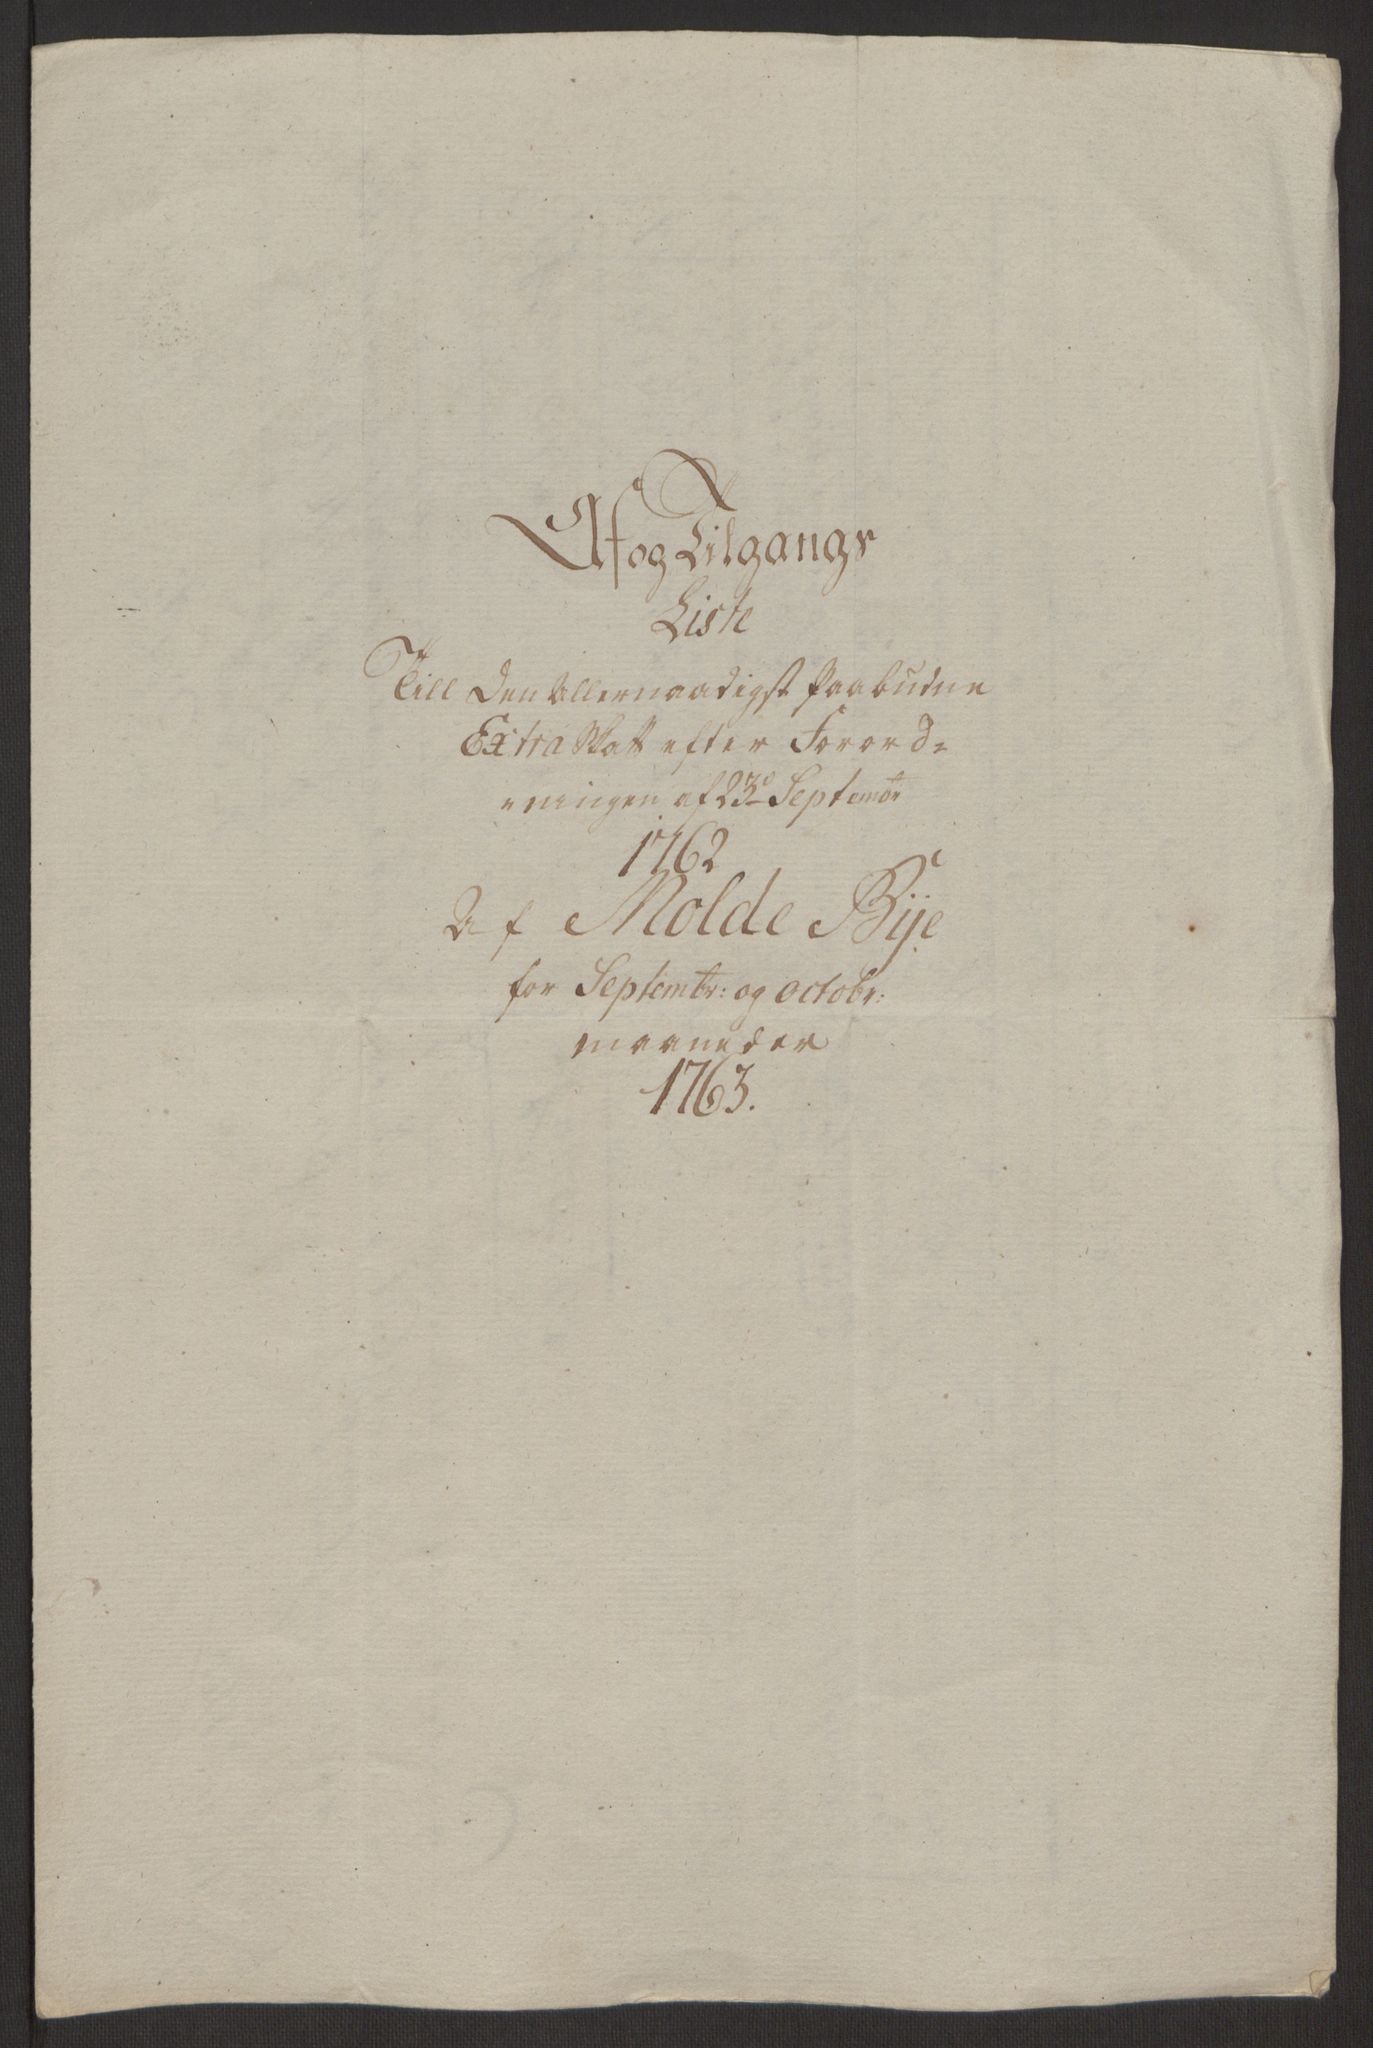 Af og Tilgangs
Liste
Till den Allernaadigst Paabudne
Extra Skatt efter Forord=
=ningen af 23de Septembr
1762
Af Molde Bÿe
for Septembr: og Octobr:
maaneder
1763.